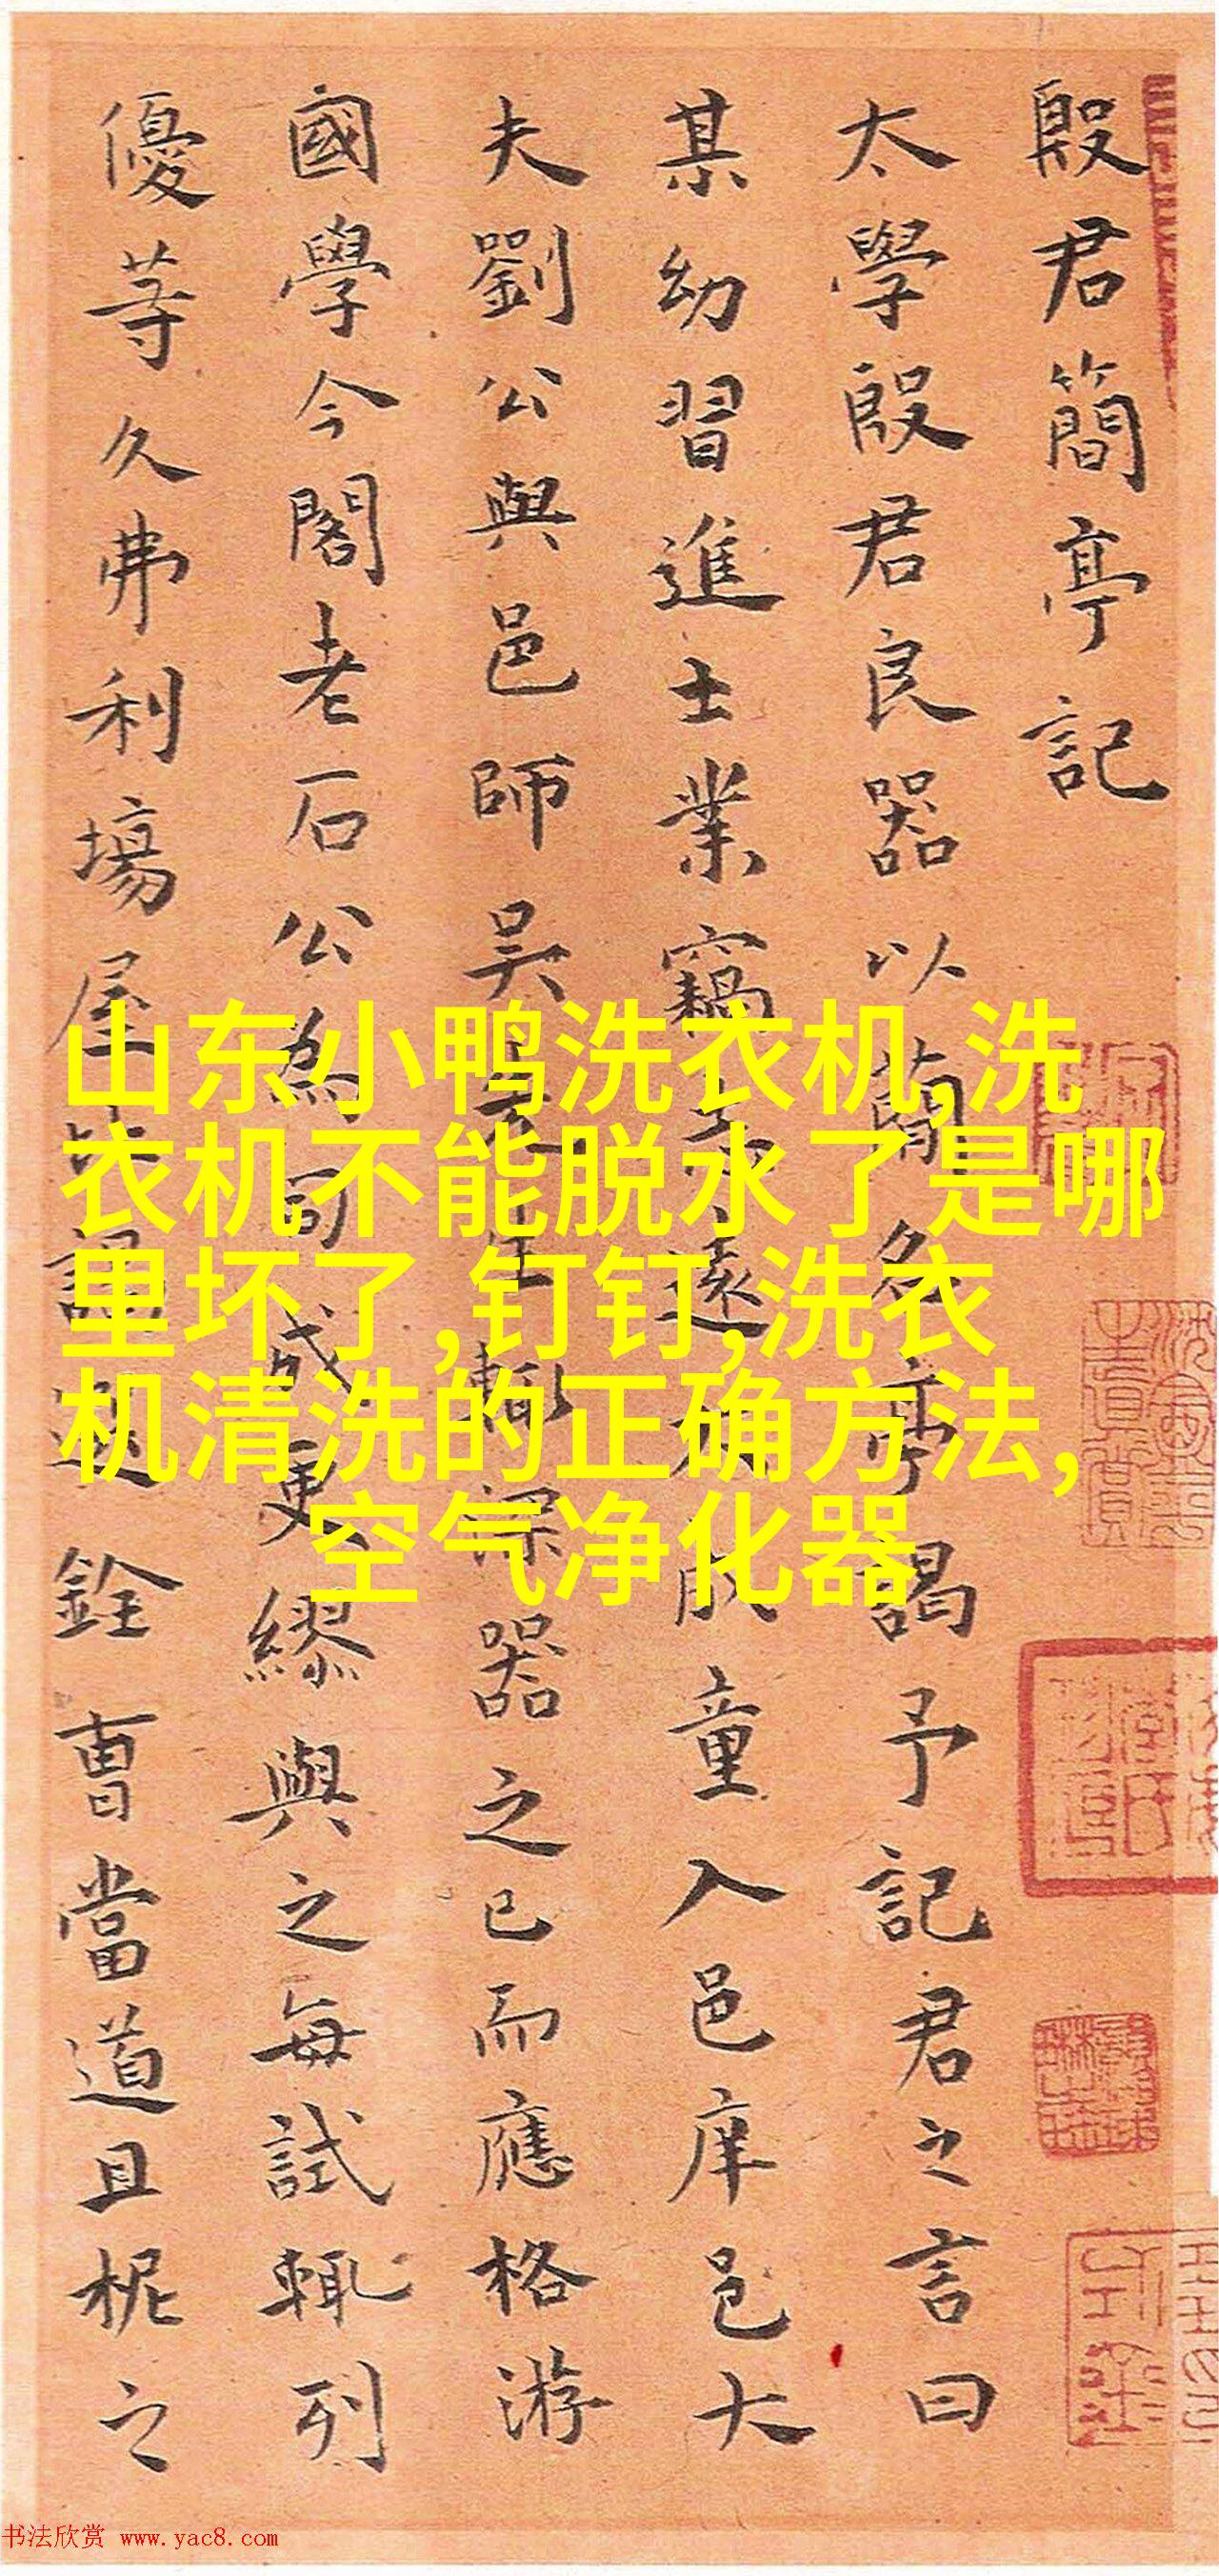 殷君簡亭記
太學殷君良器以簡名亭謁予記君之言曰
某幼習進士業竊志遠大成童入邑庠邑大
夫劉公與邑師吳先生輙深器之已而應格游
國學今閣老石公為司成更繆與之每試輒列
優等久弗利場屋比謁選銓曹當道且柅之
山东小鸭洗衣机,洗
衣机不能脱水了是哪
里坏了,钉钉,洗衣
机清洗的正确方法,
空气净化器
书法欣赏 www.yac8.com